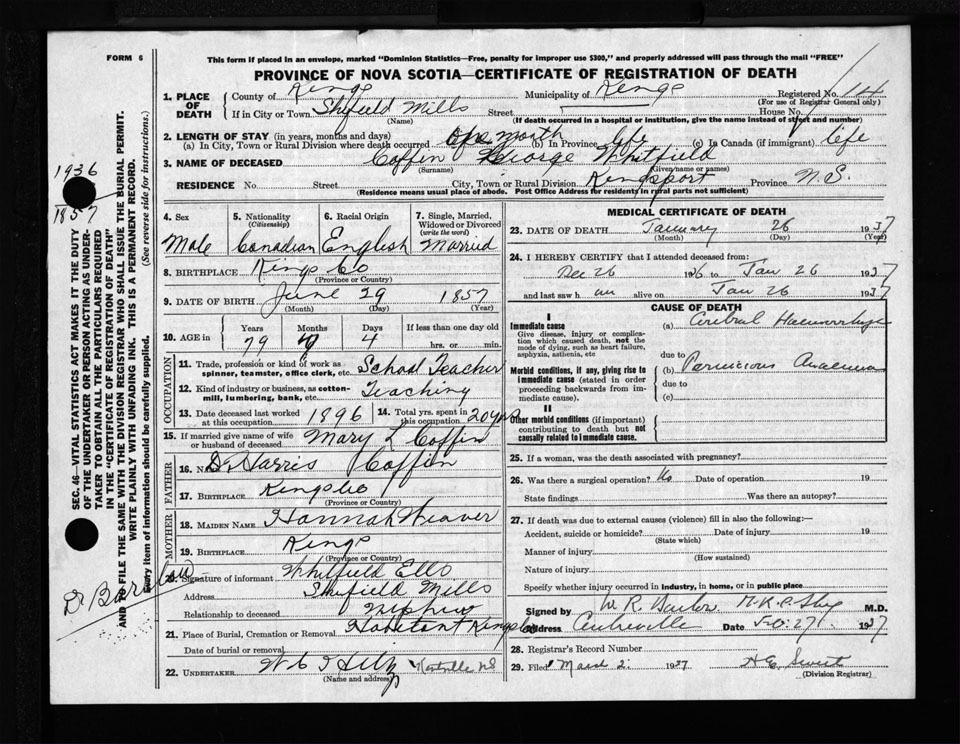 FORM 6
This form if placed in an envelope, marked "Dominion Statistics—Free, penalty for improper use $300," and properly addressed will pass through the mail "FREE"
PROVINCE OF NOVA SCOTIA—CERTIFICATE OF REGISTRATION OF DEATH
1. PLACE OF DEATH County of Kings Municipality of Kings Registered No. 114
(For use of Registrar General only)
If in City or Town Shefield Mills Street House No.
(Name) (If death occurred in a hospital or institution, give the name instead of street and number)
2. LENGTH OF STAY (in years, months and days)
(a) In City, Town or Rural Division where death occurred one month (b) In Province life (c) In Canada (if immigrant) life
3. NAME OF DECEASED Coffin George Whitfield
(Surname) (Given name or names)
RESIDENCE No. Street City, Town or Rural Division Kingsport Province N.S.
(Residence means usual place of abode. Post Office Address for residents in rural parts not sufficient)
4. Sex Male
5. Nationality (Citizenship) Canadian
6. Racial Origin English
7. Single, Married, Widowed or Divorced (write the word) Married
8. BIRTHPLACE Kings Co
(Province or Country)
9. DATE OF BIRTH June 29 1857
(Month) (Day) (Year)
10. AGE in Years Months Days If less than one day old
79 4 hrs. or min.
OCCUPATION
11. Trade, profession or kind of work as spinner, teamster, office clerk, etc. School Teacher
12. Kind of industry or business, as cotton-mill, lumbering, bank, etc. Teaching
13. Date deceased last worked at this occupation 1896 14. Total yrs. spent in this occupation 20 yrs
15. If married give name of wife or husband of deceased Mary L Coffin
FATHER
16. Harris Coffin
17. BIRTHPLACE Kings Co
(Province or Country)
MOTHER
18. MAIDEN NAME Hannah Weaver
19. BIRTHPLACE Kings
(Province or Country)
20. Signature of informant Whitfield Ells
Address Shefield Mills
Relationship to deceased Nephew
21. Place of Burial, Cremation or Removal Habitant Kings Co
Date of burial or removal
22. UNDERTAKER Kentville NS
(Name and address)
MEDICAL CERTIFICATE OF DEATH
23. DATE OF DEATH January 26 1937
(Month) (Day) (Year)
24. I HEREBY CERTIFY that I attended deceased from:
Dec 26 1936 to Jan 26 1937
and last saw h im alive on Jan 26 1937
CAUSE OF DEATH
I
Immediate cause (a) Cerebral Haemorrhage
Give disease, injury or complication which caused death, not the mode of dying, such as heart failure, asphyxia, asthenia, etc
due to
Morbid conditions, if any, giving rise to immediate cause (stated in order proceeding backwards from immediate cause). (b) Pernicious Anaemia
due to
(c)
II
Other morbid conditions (if important) contributing to death but not causally related to immediate cause.
25. If a woman, was the death associated with pregnancy?
26. Was there a surgical operation? No Date of operation 19
State findings Was there an autopsy?
27. If death was due to external causes (violence) fill in also the following:—
Accident, suicide or homicide? Date of injury 19
(State which)
Manner of injury
(How sustained)
Nature of injury
Specify whether injury occurred in industry, in home, or in public place
Signed by W. R. Barlow M.D.
Address Centreville Date 27 1937
28. Registrar's Record Number
29. Filed March 2. 1937
(Division Registrar)
1936
1857
SEC. 46—VITAL STATISTICS ACT MAKES IT THE DUTY
OF THE UNDERTAKER OR PERSON ACTING AS UNDERTAKER TO OBTAIN ALL THE PARTICULARS REQUIRED
IN THE "CERTIFICATE OF REGISTRATION OF DEATH"
AND TO FILE THE SAME WITH THE DIVISION REGISTRAR WHO SHALL ISSUE THE BURIAL PERMIT.
WRITE PLAINLY WITH UNFADING INK. THIS IS A PERMANENT RECORD.
Every item of information should be carefully supplied. (See reverse side for instructions.)
Dr Barlow